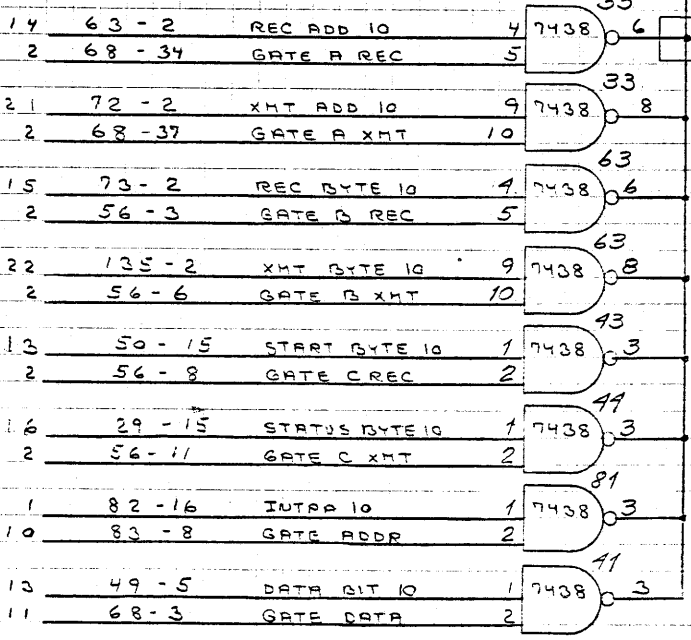 33
14 63 - 2 REC ADD 10 4 7438 6
2 68 - 34 GATE A REC 5
33
21 72 - 2 XMT ADD 10 9 7438 8
2 68 - 37 GATE A XMT 10
63
15 73 - 2 REC BYTE 10 4 7438 6
2 56 - 3 GATE B REC 5
63
22 135 - 2 XMT BYTE 10 9 7438 8
2 56 - 6 GATE B XMT 10
43
13 50 - 15 START BYTE 10 1 7438 3
2 56 - 8 GATE C REC 2
44
16 29 - 15 STATUS BYTE 10 1 7438 3
2 56 - 11 GATE C XMT 2
81
1 82 - 16 10 1 7438 3
10 83 - 8 GATE ADDR 2
41
13 49 - 5 DATA BIT 10 1 7438 3
11 68 - 3 GATE DATA 2